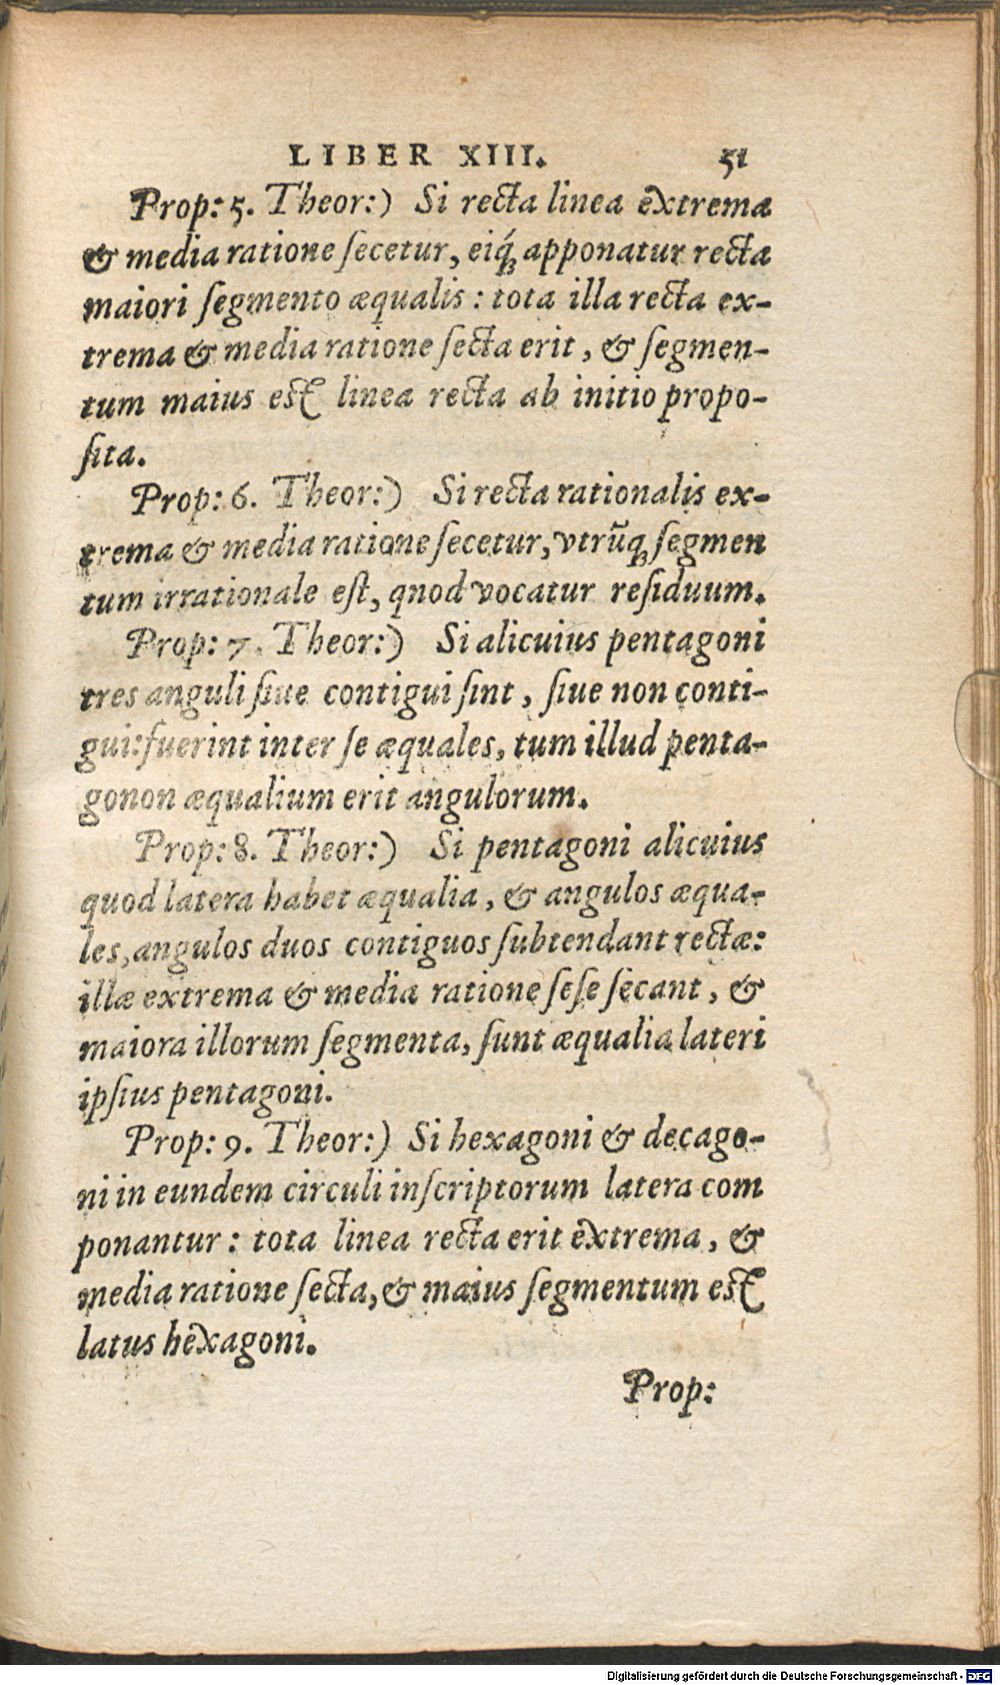 LIBER XIII. 51
Prop: 5. Theor:) Si recta linea extrema
& media ratione ſecetur, eiq́; apponatur recta
maiori ſegmento æqualis : tota illa recta ex-
trema & media ratione ſecta erit, & ſegmen-
tum maius est linea recta ab initio propo-
ſita.
Prop: 6. Theor:) Si recta rationalis ex-
trema & media ratione ſecetur, vtrũq; ſegmen
tum irrationale eſt, qnod vocatur reſiduum.
Prop: 7. Theor:) Si alicuius pentagoni
tres anguli ſiue contigui ſint, ſiue non conti-
gui: fuerint inter ſe æquales, tum illud penta-
gonon æqualium erit angulorum.
Prop: 8. Theor:) Si pentagoni alicuius
quod latera habet æqualia, & angulos æqua-
les, angulos duos contiguos ſubtendant rectæ:
illæ extrema & media ratione ſeſe ſecant, &
maiora illorum ſegmenta, ſunt æqualia lateri
ipſius pentagoni.
Prop: 9. Theor:) Si hexagoni & decago-
ni in eundem circuli inſcriptorum latera com
ponantur : tota linea recta erit extrema, &
media ratione ſecta, & maius ſegmentum est
latus hexagoni.
Prop:
Digitalisierung gefördert durch die Deutsche Forschungsgemeinschaft - DFG